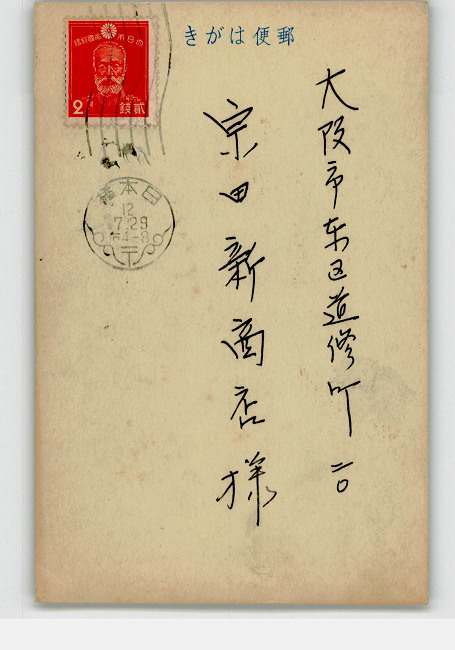 きがは便郵
大日本帝國郵便
2
貳錢
日本橋
12
7.29
4-8
大阪市东区道修町二ノ
宗田新商店様